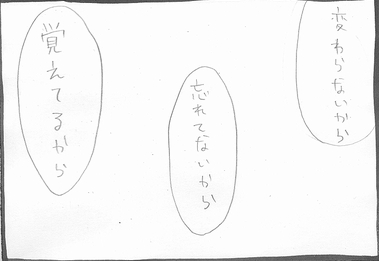 変わらないから
忘れてないから
覚えてるから